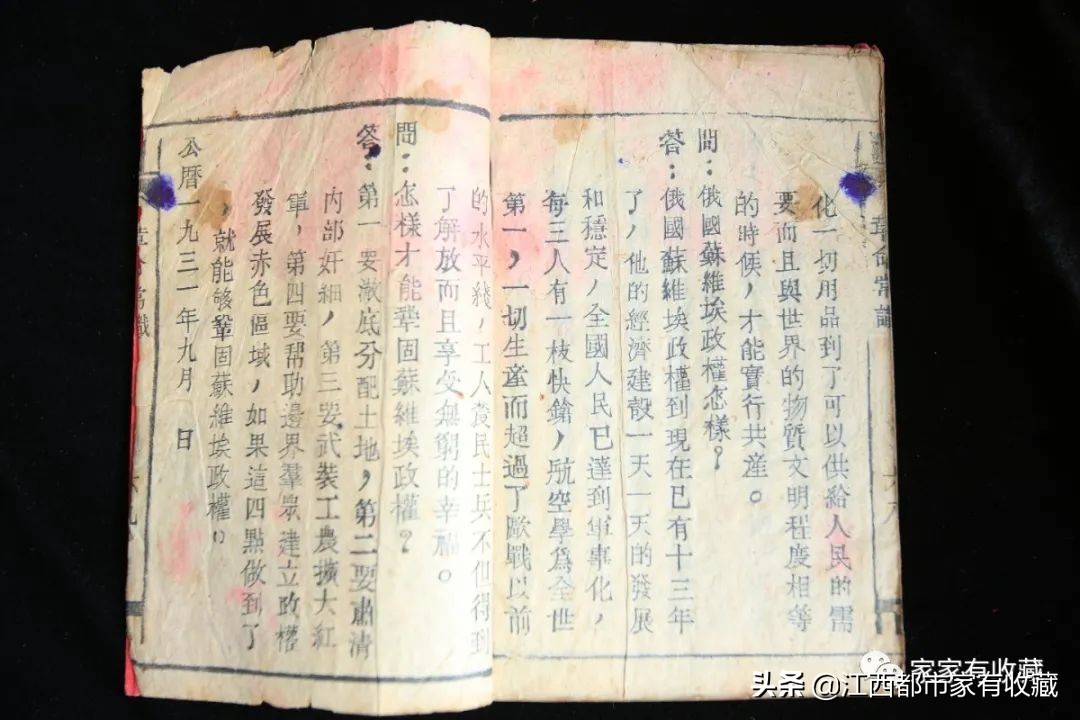 革命常識
化一切用品到了可以供給人民的需
要而且與世界的物質文明程度相等
的時候，才能實行共產。
問：俄國蘇維埃政權怎樣？
答：俄國蘇維埃政權到現在已有十三年
了，他的經濟建設一天一天的發展
和穩定，全國人民已達到軍事化，
每三人有一枝快鎗，航空學爲全世
第一，一切生産而超過了歐戰以前
的水平綫，工人農民士兵不但得到
了解放而且享受無窮的幸福。
問：怎樣才能鞏固蘇維埃政權？
答：第一要澈底分配土地，第二要肅清
内部奸細，第三要武裝工農擴大紅
軍，第四要帮助邊界羣衆建立政權
發展赤色區域，如果這四點做到了
，就能够鞏固蘇維埃政權。
公曆一九三一年九月 日
常識
家家有收藏
头条 @江西都市家有收藏